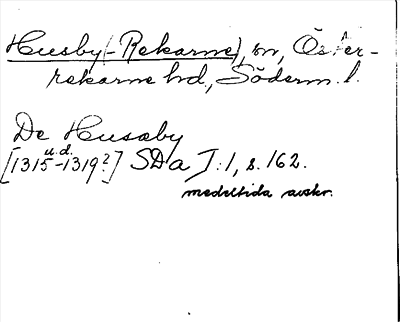 Husby(-Rekarne), sn, Öster-
rekarne hd, Söderm. l.
De Husaby
u.d.
[1315-1319?] SDa I:1, s. 162.
medeltida avskr.